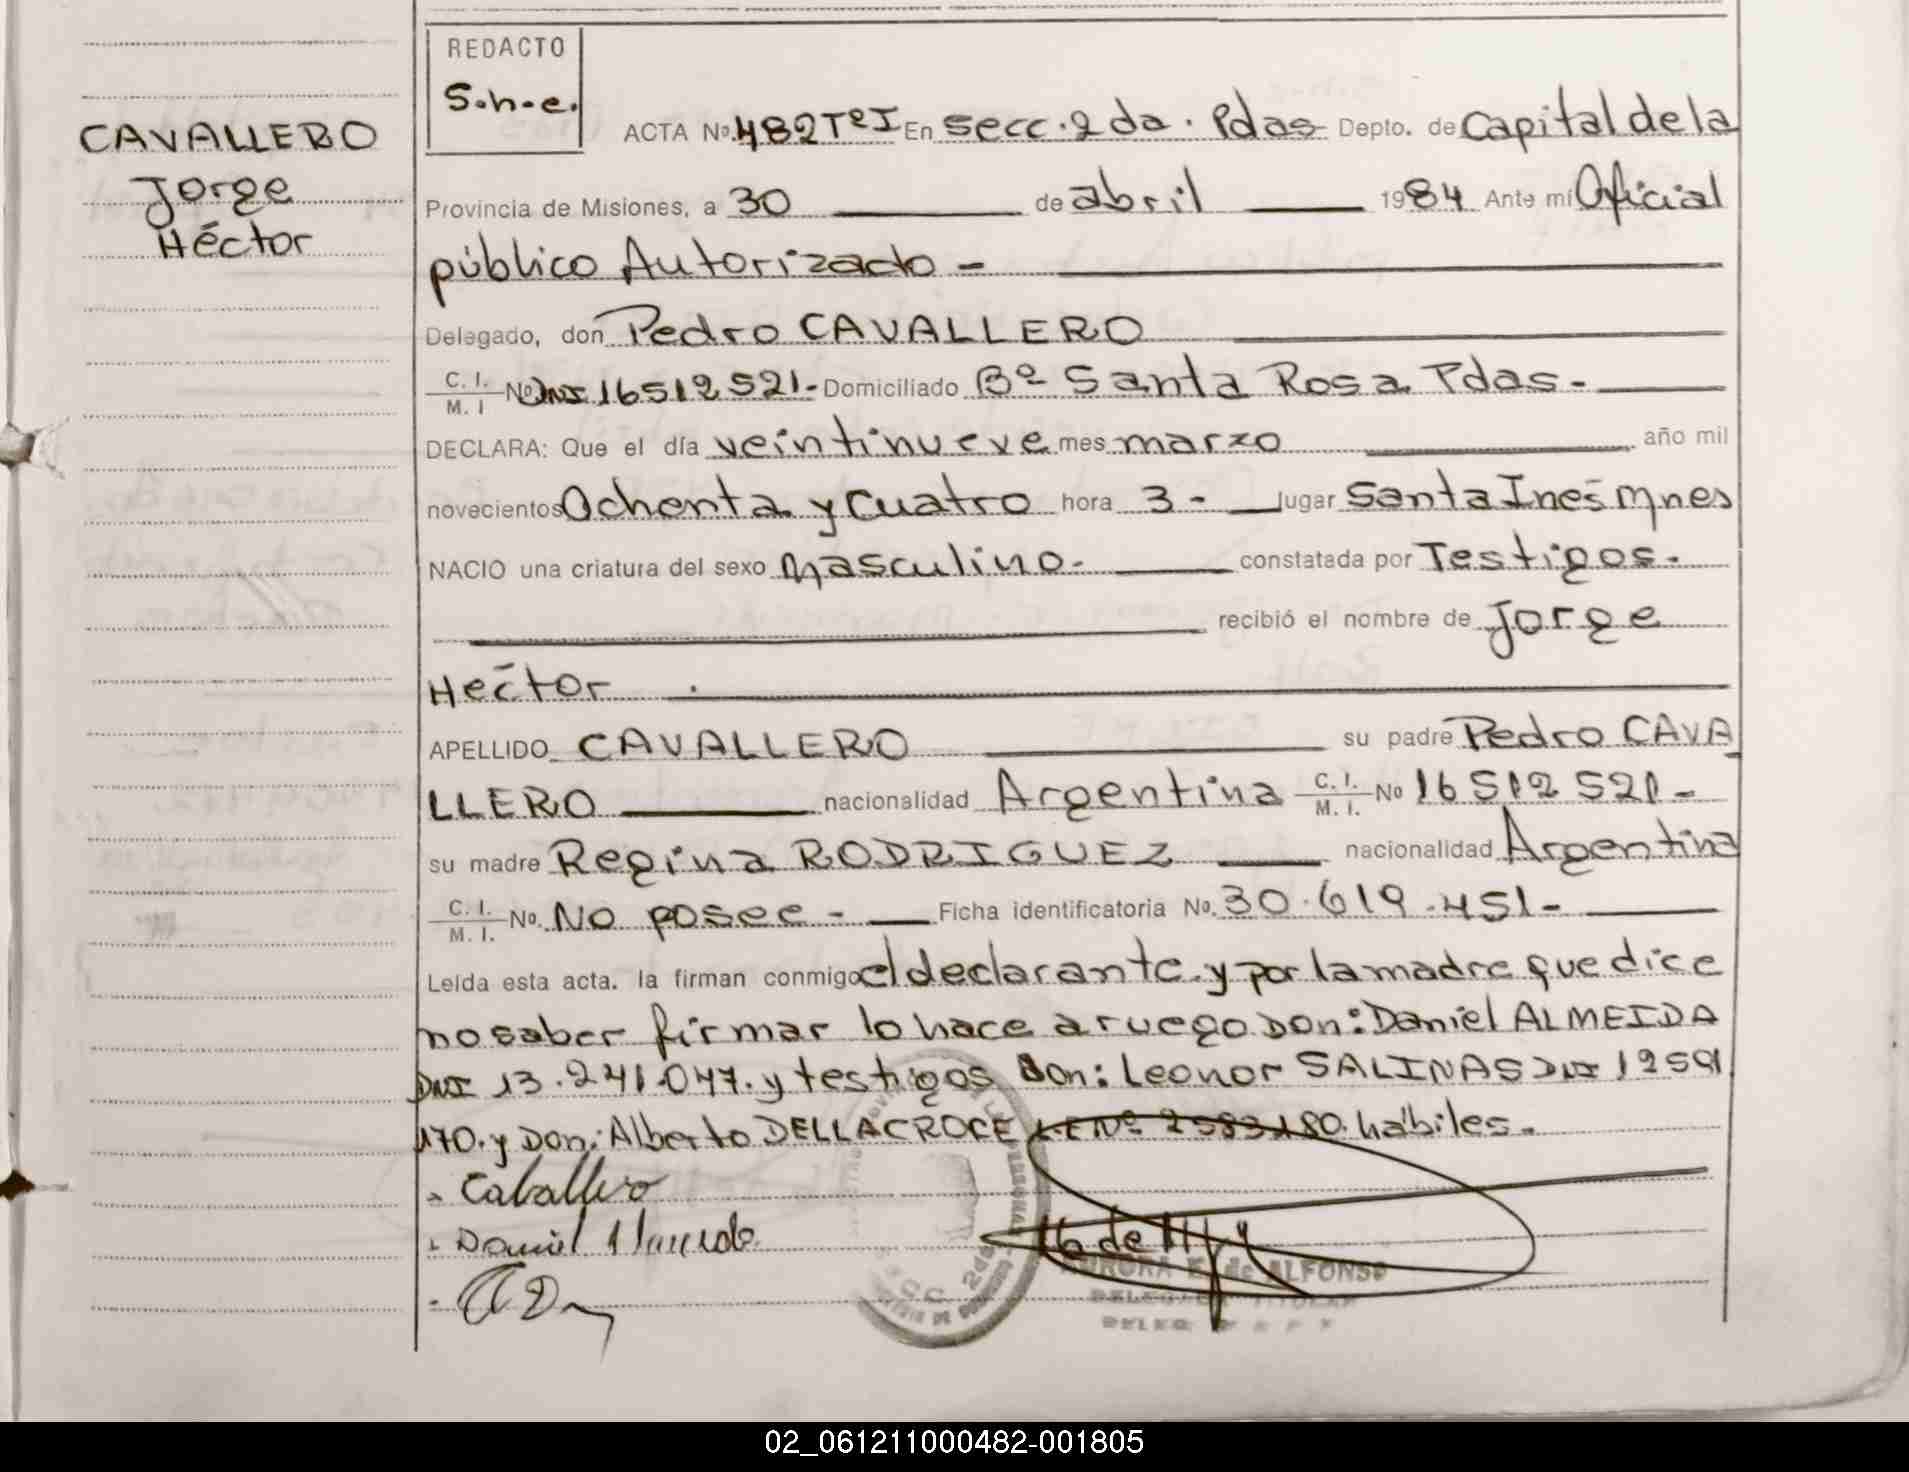 REDACTO
S.h.e.
CAVALLERO
Jorge
Héctor
ACTA Nº 482 TºI En secc. 2da. Pdas Depto. de Capital de la
Provincia de Misiones, a 30 de abril 1984 Ante mi Oficial
público Autorizado -
Delegado, don Pedro CAVALLERO
C. I. / M. I Nº DNI 16512521- Domiciliado Bº Santa Rosa Pdas-
DECLARA: Que el día veintinueve mes marzo año mil
novecientos Ochenta y Cuatro hora 3 - lugar Santa Inés Mnes
NACIO una criatura del sexo Masculino- constatada por Testigos.-
recibió el nombre de Jorge
Hector
APELLIDO CAVALLERO su padre Pedro CAVA
LLERO nacionalidad Argentina C. I. / M. I. Nº 16512521-
su madre Regina RODRIGUEZ nacionalidad Argentina
C. I. / M. I. Nº. No posee - Ficha identificatoria Nº. 30.619.451-
Leída esta acta. la firman conmigo el declarante y por la madre que dice
no saber firmar lo hace a ruego Don: Daniel ALMEIDA
DNI 13.241.047. y testigos Don: Leonor SALINAS DNI 12591
170. y Don: Alberto DELLACROCE L.E Nº 2583180 hábiles.
Caballero
Daniel
AURORA E. de ALFONSO
DELEGADA TITULAR
02_061211000482-001805